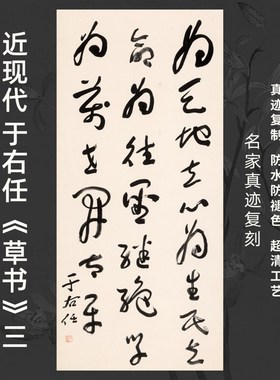 真迹复制 防水防褪色 超清工艺
名家真迹复刻
為天地立心為生民立
命為往聖繼絕學
為萬世開太平
于右任
近现代 于右任《草书》三